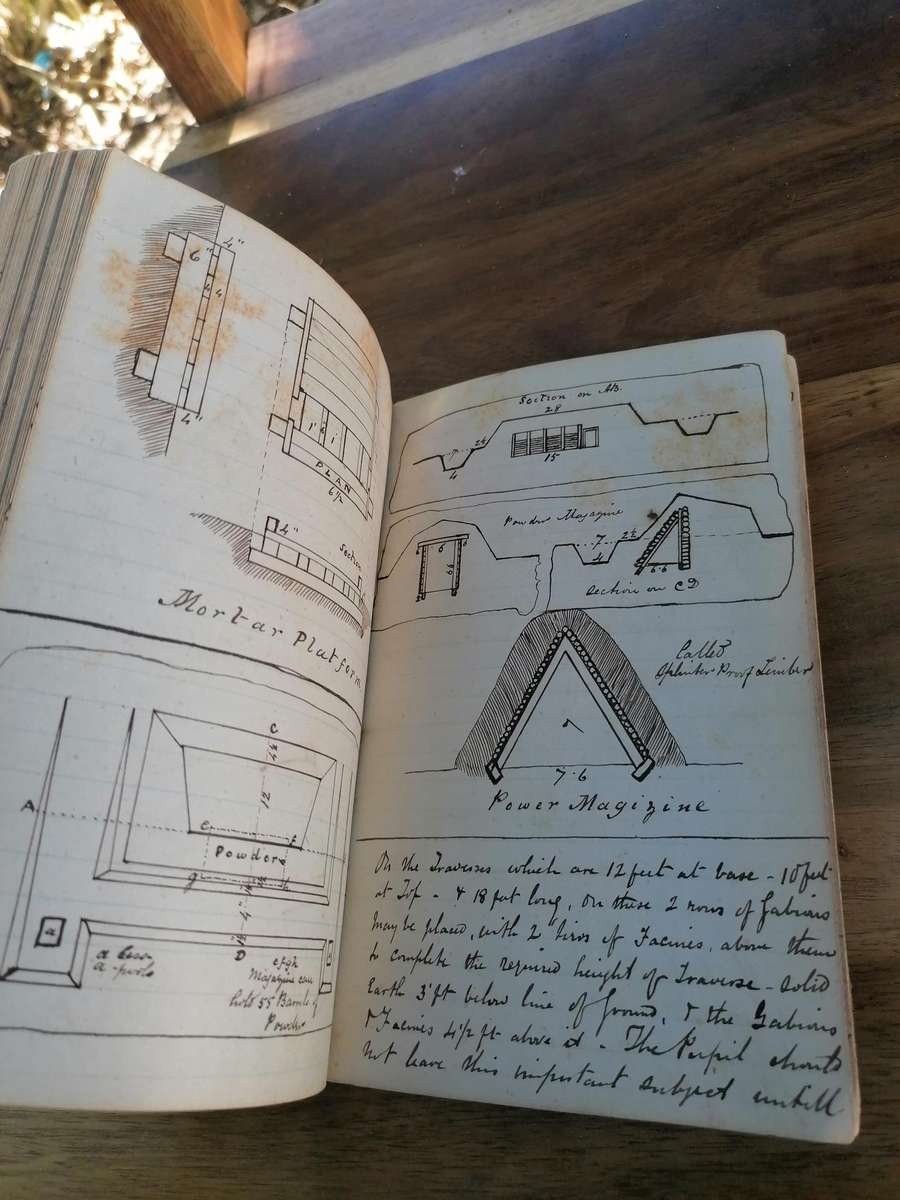 4"
6"
4
4
4"
1'
1'
PLAN
6½
4"
Section
Mortar Platform
C
1½
12
A
e
f
Powder
g
h
4"
1½
D
a
a
efgh
Magazine can
hold 55 Barrels of
Powder
Section on AB.
28
7
2½
4
15
Powder Magazine
6
6½
7
2½
4
6.6
Section on CD
Called
Splinter Proof Timber
7.6
Power Magizine
On the Traverses which are 12 feet at base - 10 feet
at Top - & 18 feet long, on these 2 rows of Gabions
may be placed, with 2 tiros of Facines, above them
to complete the required height of Traverse - solid
Earth 3 ft below line of Ground, & the Gabions
& Facines 4½ ft above it - The Pupil should
not leave this important subject untill